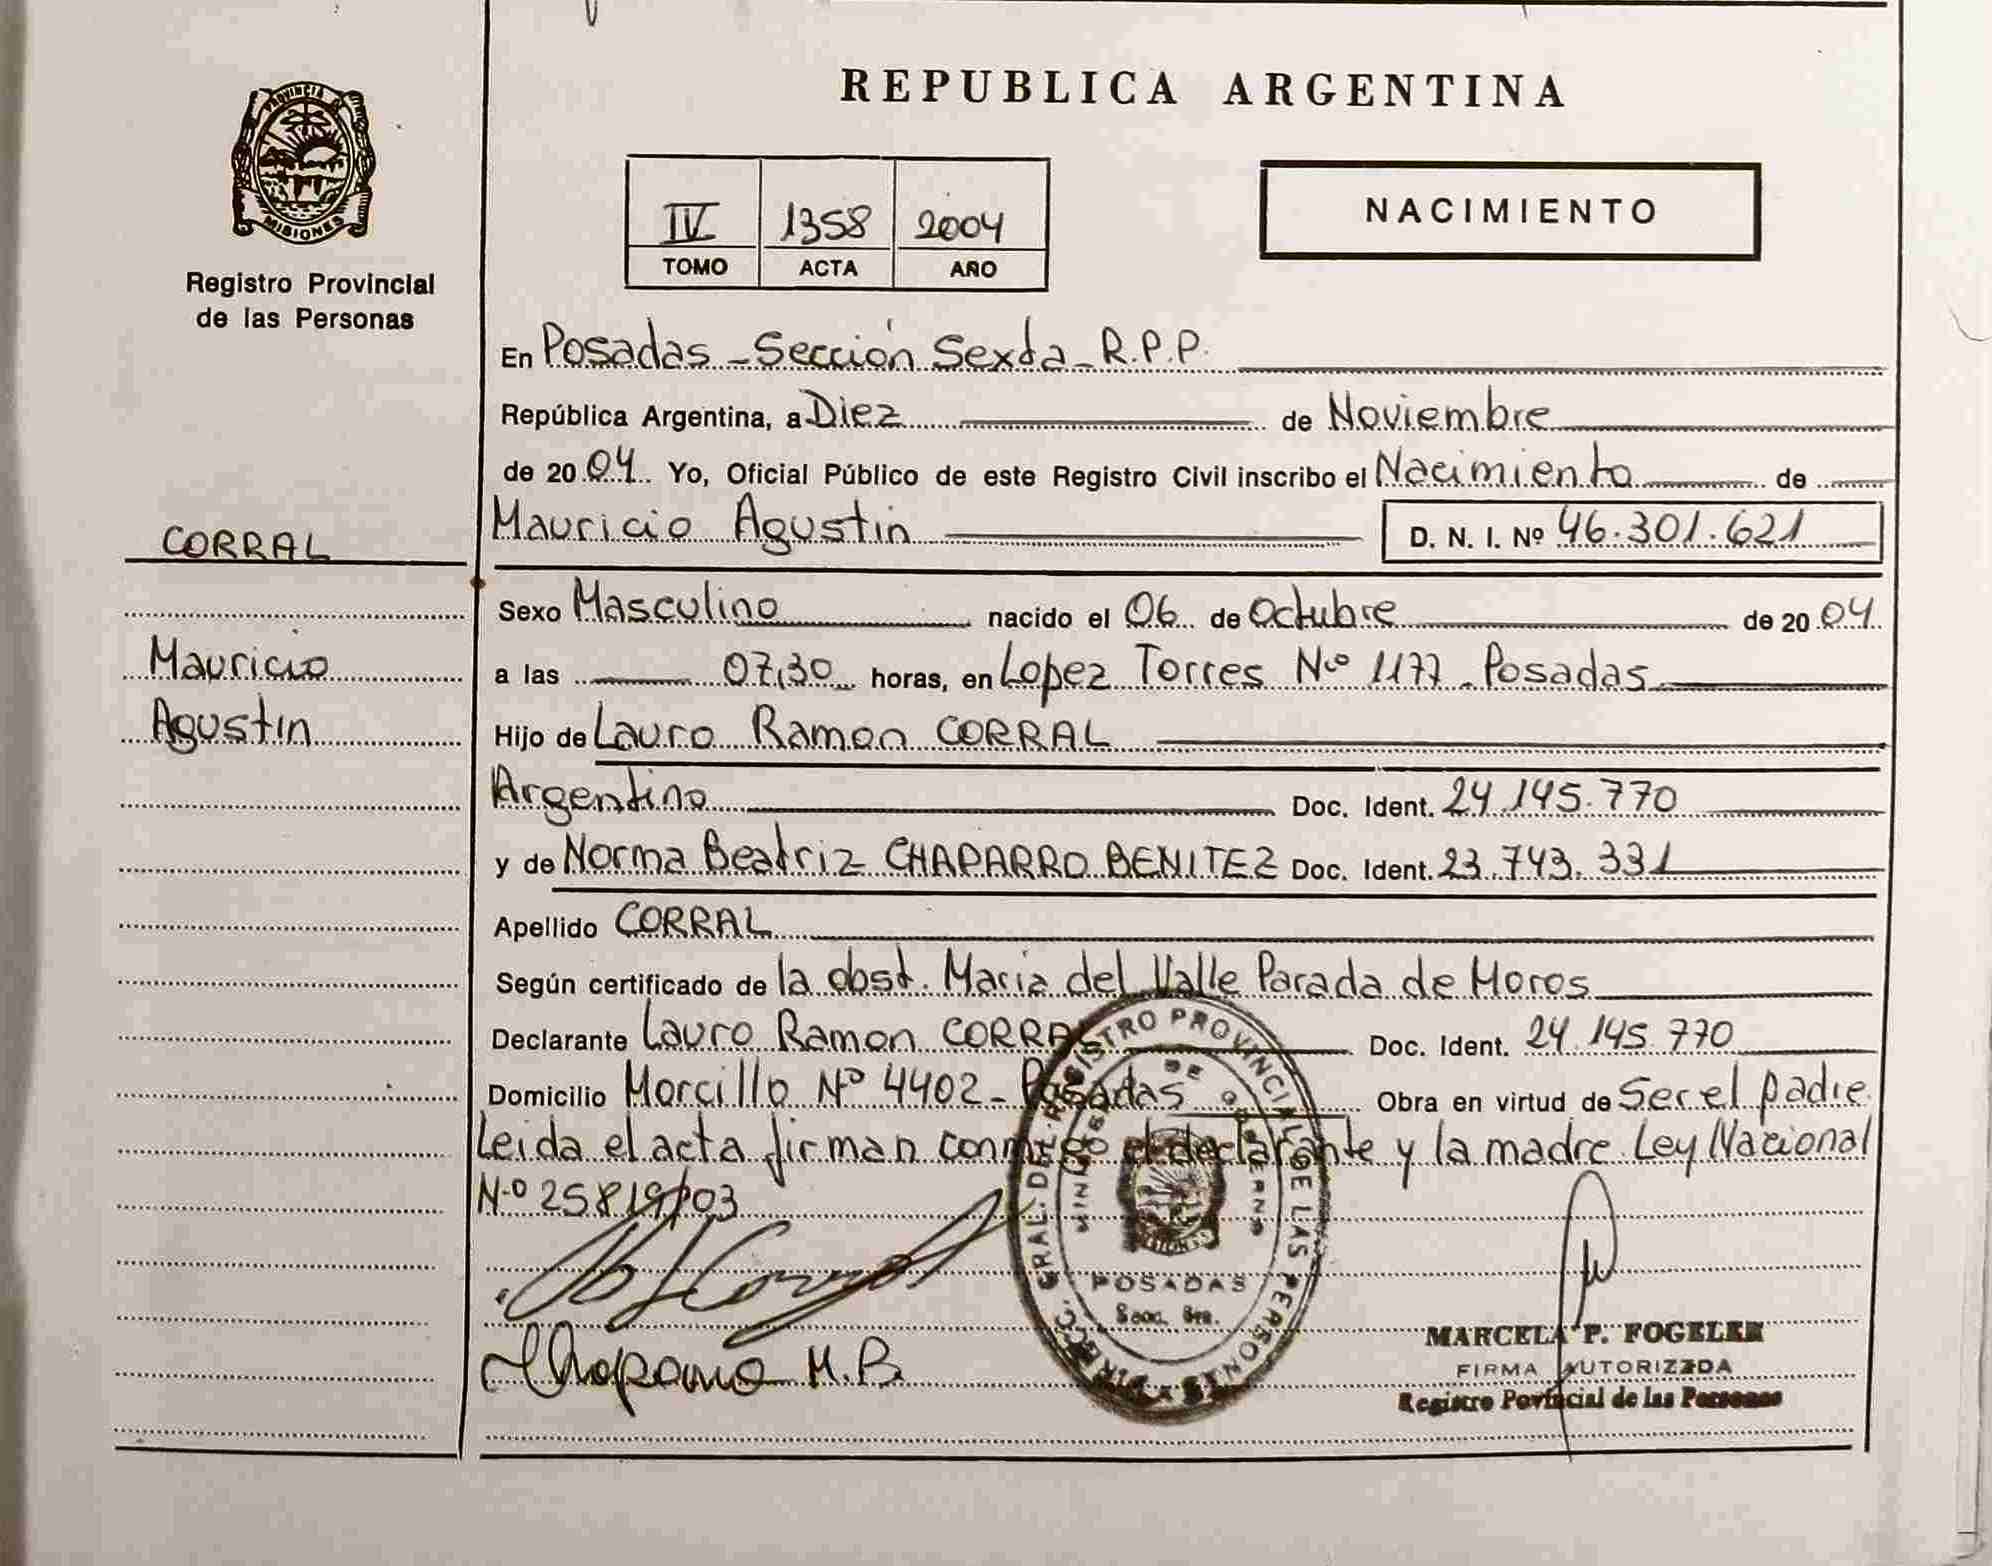 REPUBLICA ARGENTINA
PROVINCIA DE
MISIONES
Registro Provincial
de las Personas
IV 1358 2004
TOMO ACTA AÑO
NACIMIENTO
En Posadas - Sección Sexta - R.P.P.
República Argentina, a Diez de Noviembre
de 2004 Yo, Oficial Público de este Registro Civil inscribo el Nacimiento de
Mauricio Agustin D. N. I. Nº 46.301.621
CORRAL
Mauricio
Agustin
Sexo Masculino nacido el 06 de Octubre de 2004
a las 07,30 horas, en Lopez Torres Nº 1177 - Posadas
Hijo de Lauro Ramon CORRAL
Argentino Doc. Ident. 24.145.770
y de Norma Beatriz CHAPARRO BENITEZ Doc. Ident. 23.743.331
Apellido CORRAL
Según certificado de la obst. Maria del Valle Parada de Moros
Declarante Lauro Ramon CORRAL Doc. Ident. 24.145.770
Domicilio Morcillo Nº 4402 - Posadas Obra en virtud de Ser el padre
Leida el acta firman conmigo el declarante y la madre Ley Nacional
Nº 25819/03
DIRECC. GRAL. DEL REGISTRO PROVINCIAL DE LAS PERSONAS
MINISTERIO DE GOBIERNO
POSADAS
Secc. 6ta.
N.B.
MARCELA P. FOGELER
FIRMA AUTORIZADA
Registro Povincial de las Personas